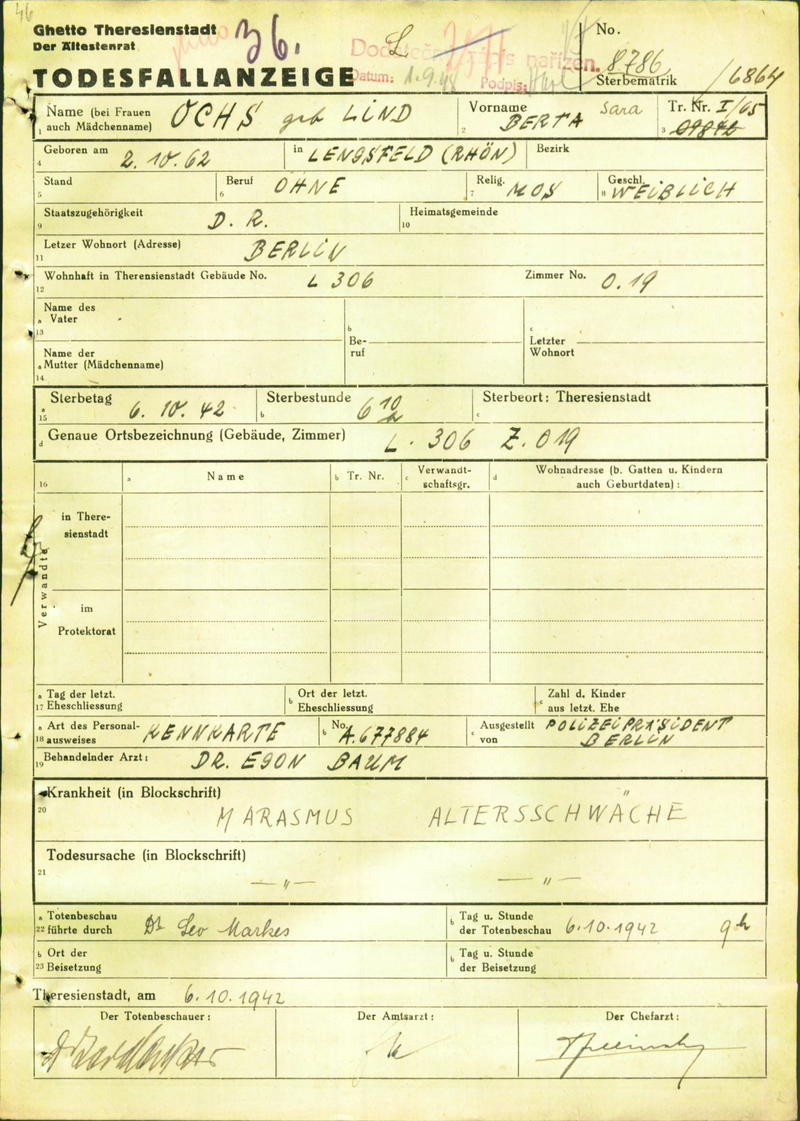 46
Ghetto Theresienstadt
Der Ältestenrat
36.
L
No. 8786
TODESFALLANZEIGE
Datum: 1.9.48 Podpis:
Sterbematrik /6864
Name (bei Frauen auch Mädchenname) OCHS geb LIND
1
Vorname BERTA Sara
2
Tr. Nr. I/65
3 09842
Geboren am 2.10.62
4
in LENGSFELD (RHÖN)
Bezirk
Stand
5
Beruf OHNE
6
Relig. MOS
7
Geschl. WEIBLICH
8
Staatszugehörigkeit D. R.
9
Heimatsgemeinde
10
Letzer Wohnort (Adresse) BERLIN
11
Wohnhaft in Theresienstadt Gebäude No. L 306
12
Zimmer No. 0.19
Name des
a Vater
13
Name der
a Mutter (Mädchenname)
14
b
Be-
ruf
c
Letzter
Wohnort
Sterbetag 6. 10. 42
a
15
Sterbestunde 6 10
b
Sterbeort: Theresienstadt
c
d Genaue Ortsbezeichnung (Gebäude, Zimmer) L. 306 Z. 019
16
a Name
b Tr. Nr.
c Verwandt-
schaftsgr.
d Wohnadresse (b. Gatten u. Kindern
auch Geburtdaten) :
Verwandte
in There-
sienstadt
im
Protektorat
a Tag der letzt.
17 Eheschliessung
b Ort der letzt.
Eheschliessung
c Zahl d. Kinder
aus letzt. Ehe
a Art des Personal-
18 ausweises KENNKARTE
b No. A.677884
c Ausgestellt
von POLIZEIPRÄSIDENT
BERLIN
Behandelnder Arzt: DR. EGON BAUM
19
Krankheit (in Blockschrift)
20
MARASMUS ALTERSSCHWÄCHE
Todesursache (in Blockschrift)
21
— " — — " —
a Totenbeschau
22 führte durch Dr Leo Markes
b Tag u. Stunde
der Totenbeschau 6.10.1942 9h
b Ort der
23 Beisetzung
b Tag u. Stunde
der Beisetzung
Theresienstadt, am 6.10.1942
Der Totenbeschauer :
Der Amtsarzt :
Der Chefarzt :